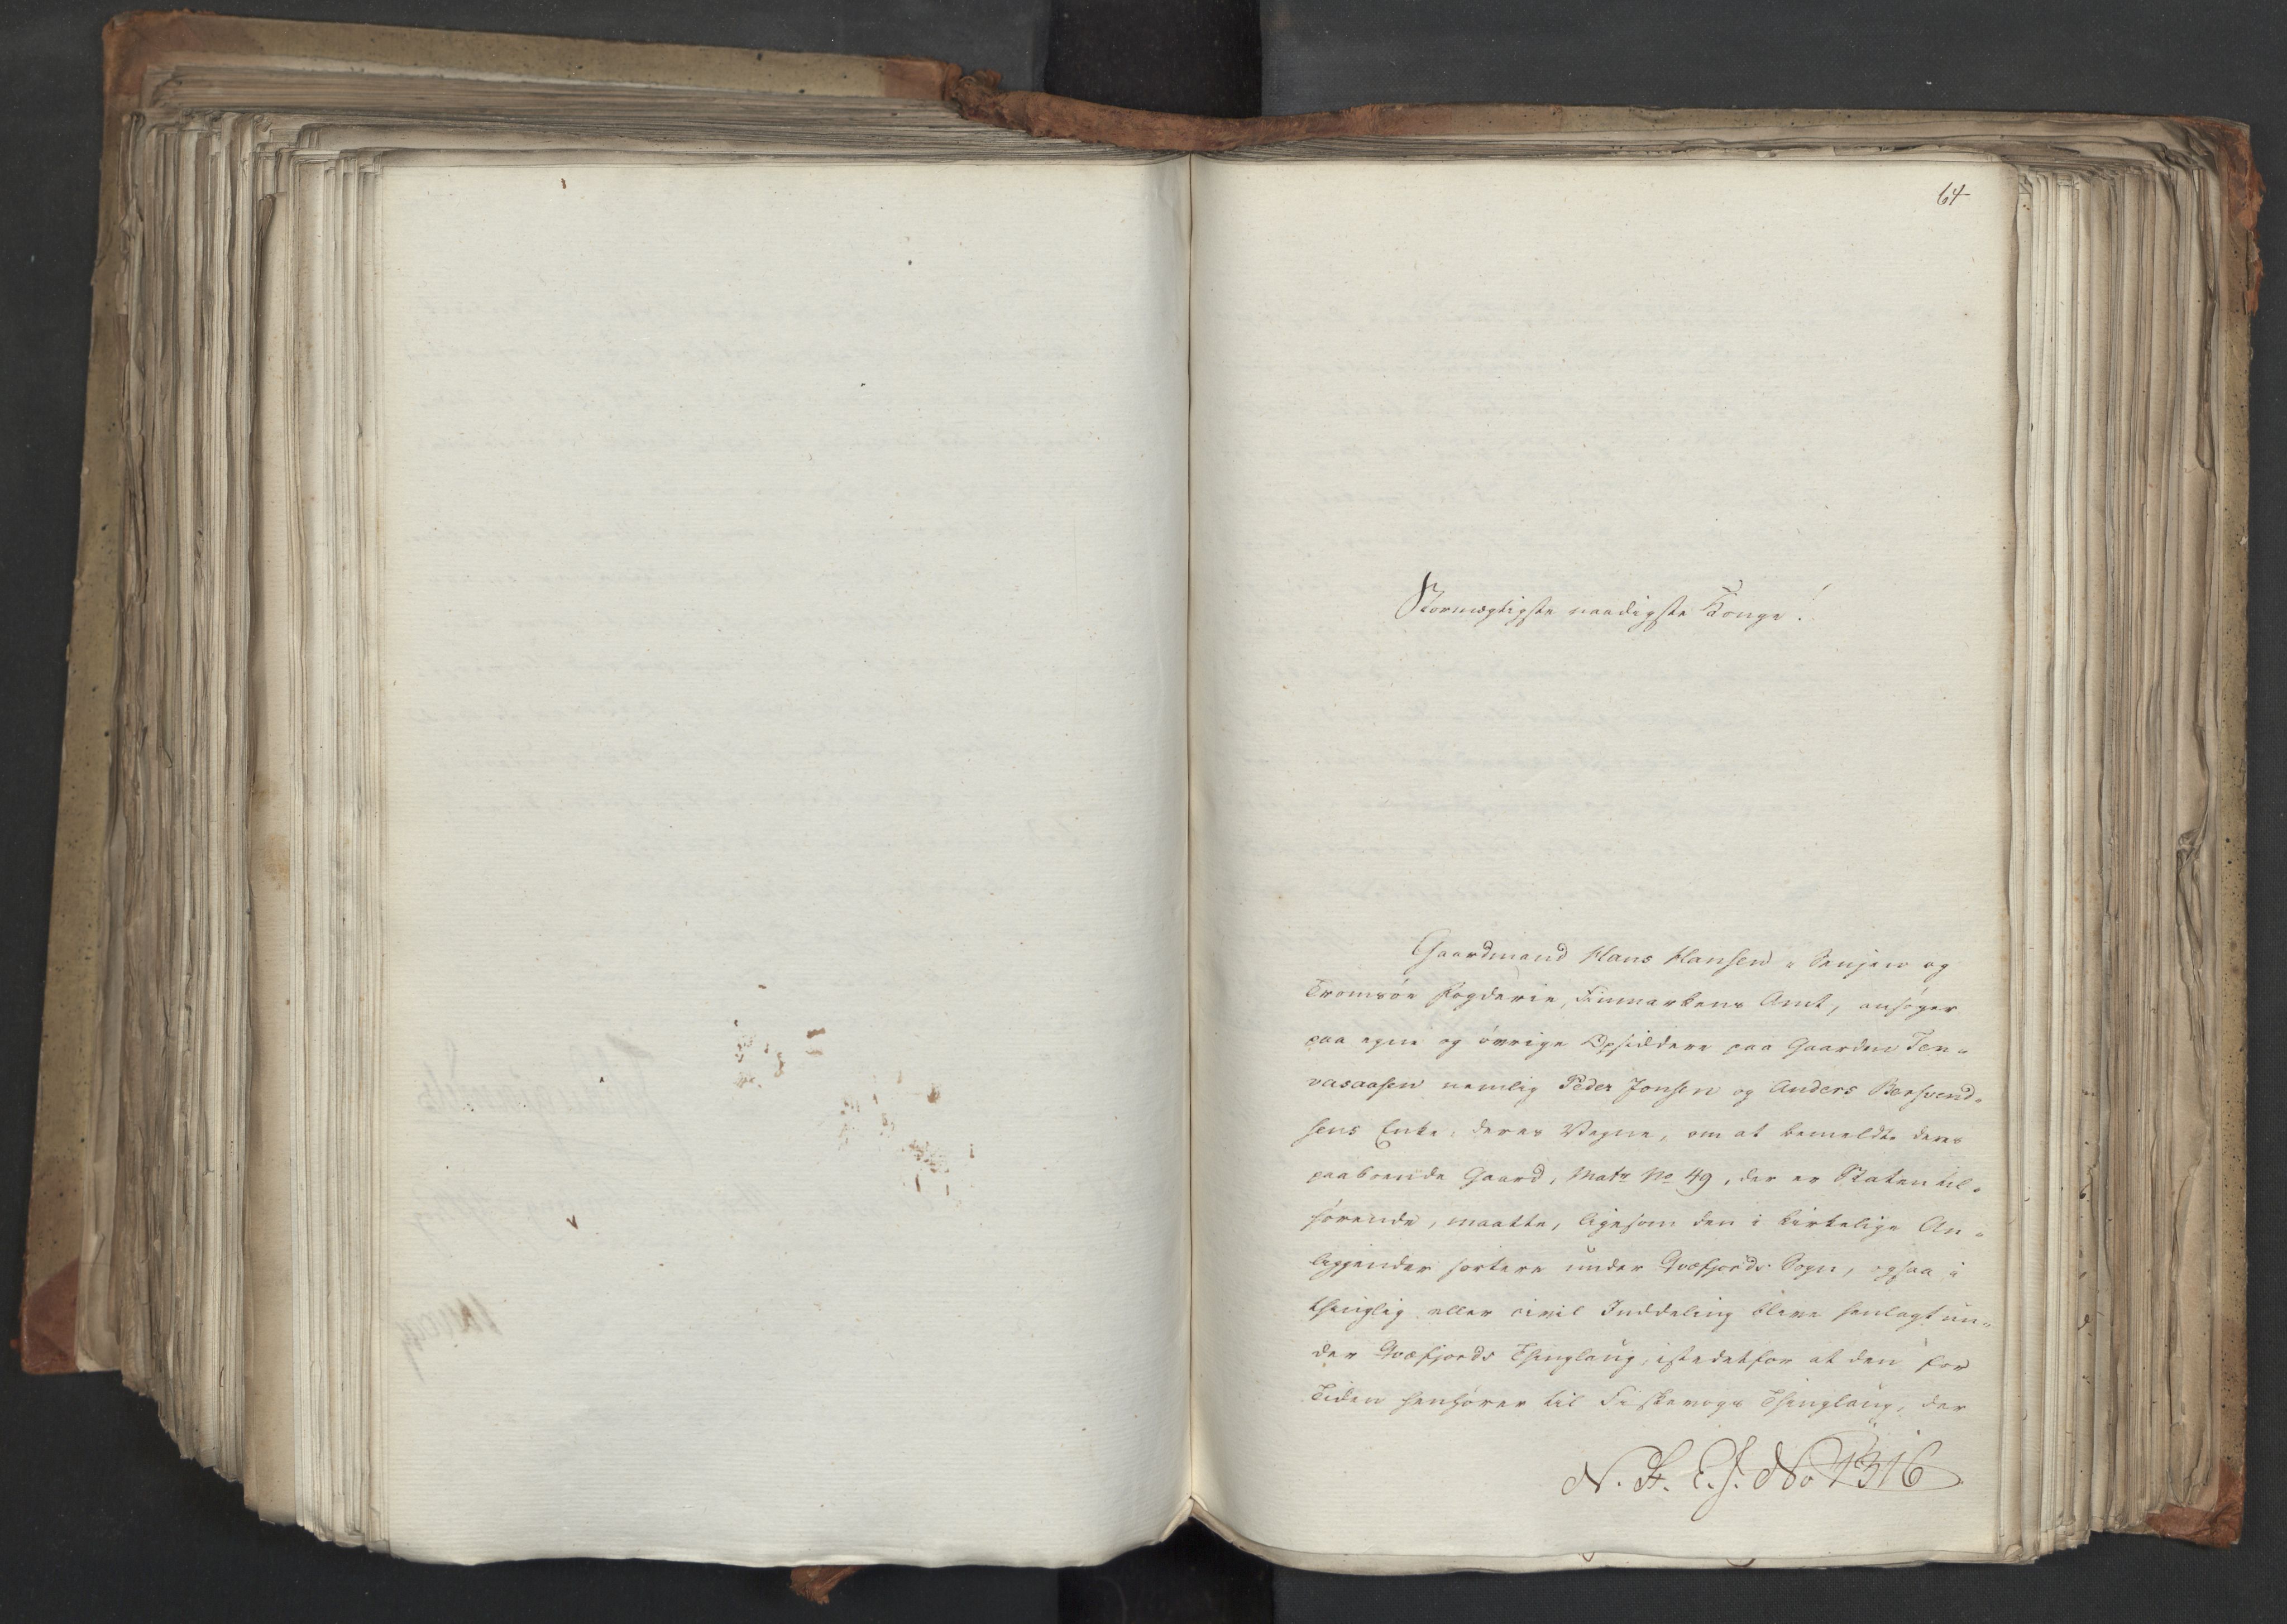 64
Stormægtigste naadigste Konge!
Gaardmand Hans Hansen i Senjen og
Tromsöe Fogderie, Finmarkens Amt, ansöger
paa egne og övrige Opsiddere paa Gaarden Ten-
vasaasen nemlig Peder Jonsen og Anders Bersvend-
sens Enke, deres Vegne, om at bemeldte deres
paaboende Gaard, Matr No 49, der er Staten til-
hörende, maatte, ligesom den i kirkelige An-
liggender sortere under Qvæfjords Sogn, ogsaa i
thinglig eller civil Inddeling blive henlagt un-
der Qvæfjords Thinglaug, istedetfor at den for
Tiden henhörer til Fiskevogs Thinglaug, der
N. H. E. J. No 1316